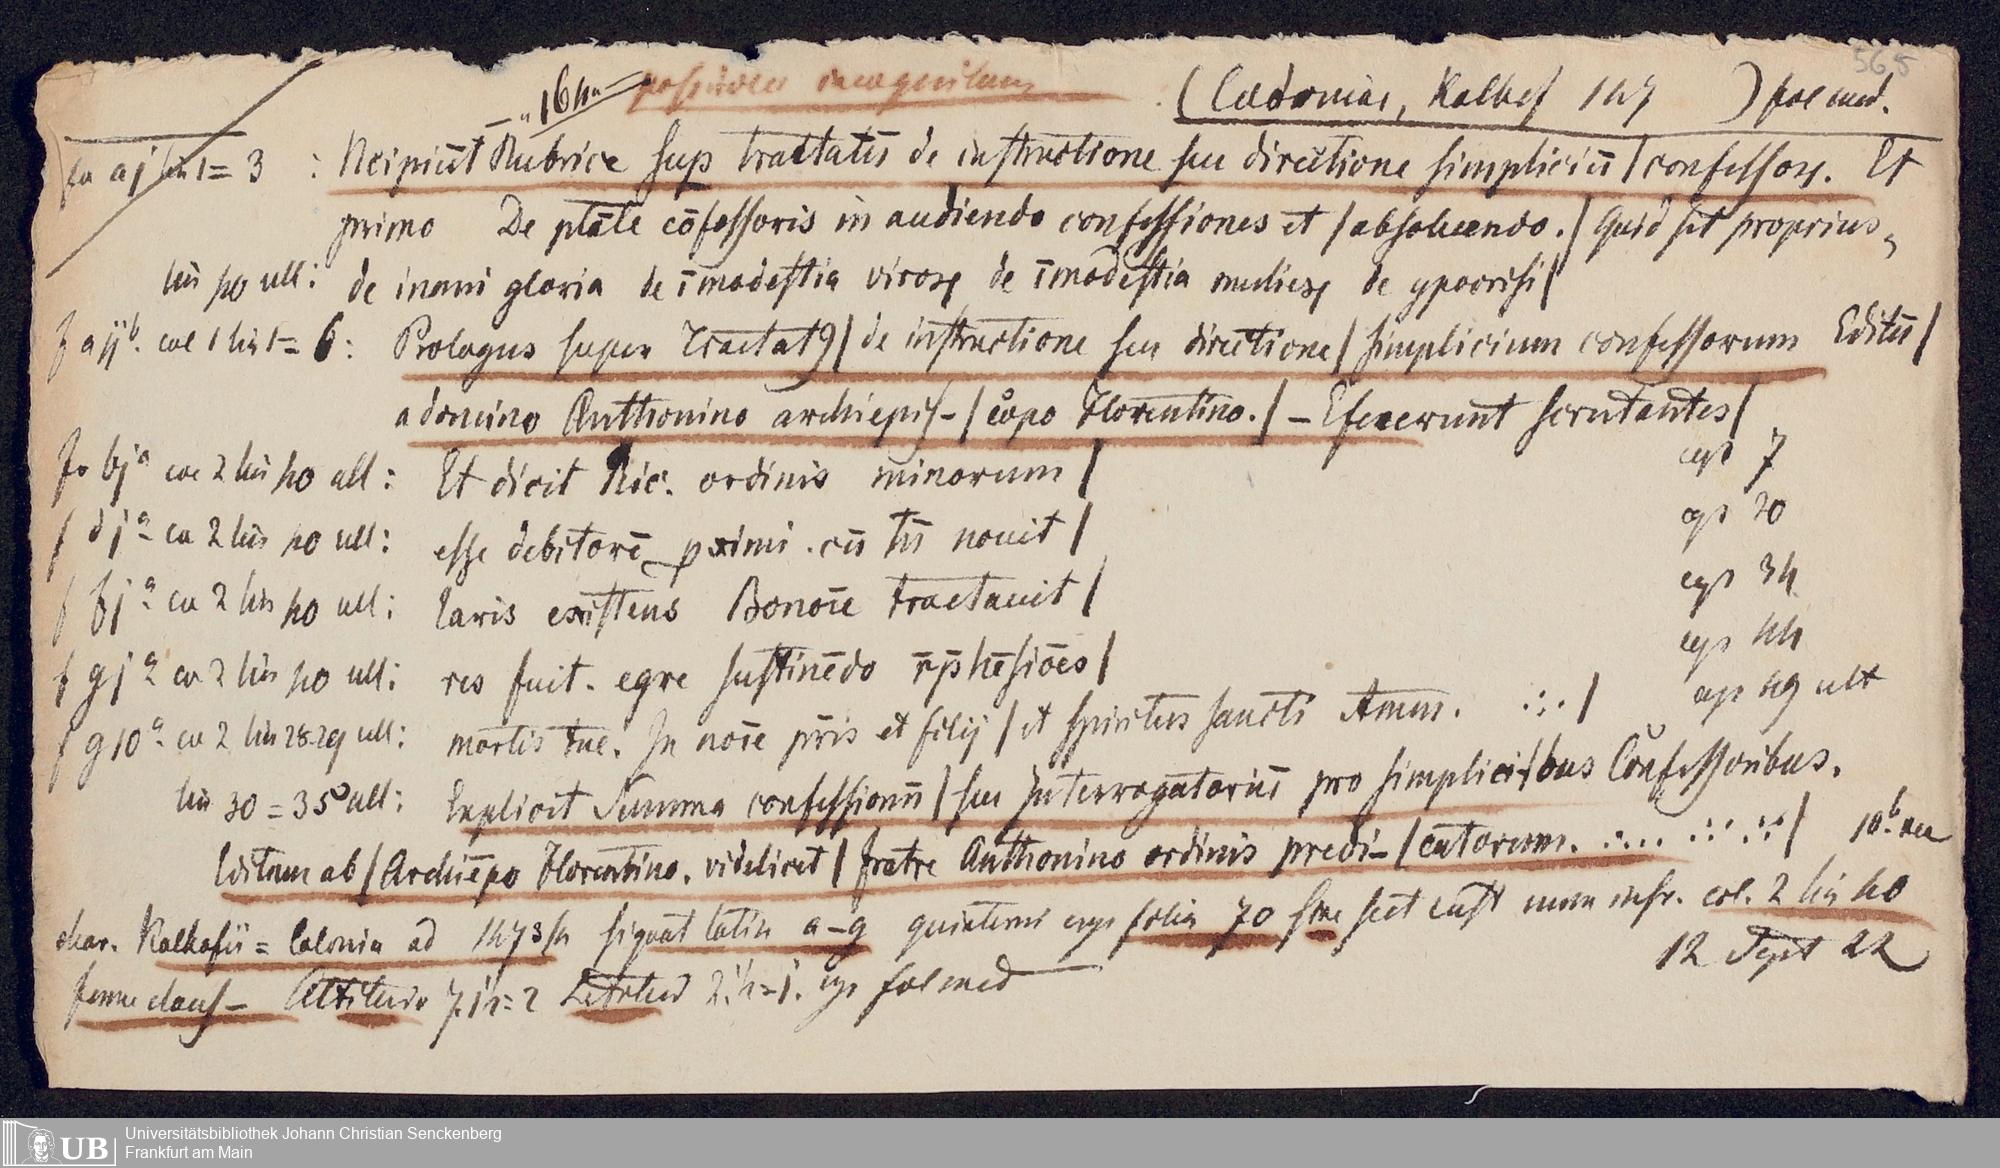 565
(Coloniae, Kalkof 147 ) fol med.
fa aj lin 1 = 3 : Ncipiūt Rubrice sup tractatū de instructione seu directione simpliciū / confessoꝝ. Et
primo De ptāte cōfessoris in audiendo confessiones et / absoluendo. / Quid sit proprius,
lin 40 ull: de inani gloria de īmodestia viroꝝ de īmodestia mulieꝝ de ypocrisi /
f a ijb. col 1 lin 1 = 6 : Prologus super Tractatꝯ / de instructione seu directione / simplicium confessorum Editū /
a domino Anthonino archiepis- / cōpo Florentino. / - Efecerunt scrutantes /
fo bja col 2 lin 40 ull : Et dicit Ric. ordinis minorum / cap 7
f dja co 2 lin 40 ull : esse debitorē proximi . cū tū nouit / cap 20
f fja co 2 lin 40 ull : laris existens Bonoīe tractauit / cap 34
f gja co 2 lin 40 ull : res fuit . egre sustinēdo r̄p̄hēsiōes / cap 44
f g10a co 2 lin 28-29 ull : mortis tue. In noīe pr̄is et filij / et spiritus sancti Amen. .:. / cap 49 ult
lin 30 = 35 ull : Explicit Summa confessionū / seu Interrogatoriū pro simplici- / bus Cōnfessoribus.
Editum ab / Archiēpo Florentino. videlicet / fratre Anthonino ordinis predi- / catorum. .:... .:. .:. / 10b vac
char. Kalkofii = Colonia ad 1473/4 signat latin a-g quinterni cap folia 70 sine sect cust num inscr. col. 2 lin 40
12 Sept 22
Altitudo 7.1/4=2 Latitud 2.1/4=1. cap fol med
Universitätsbibliothek Johann Christian Senckenberg
UB Frankfurt am Main